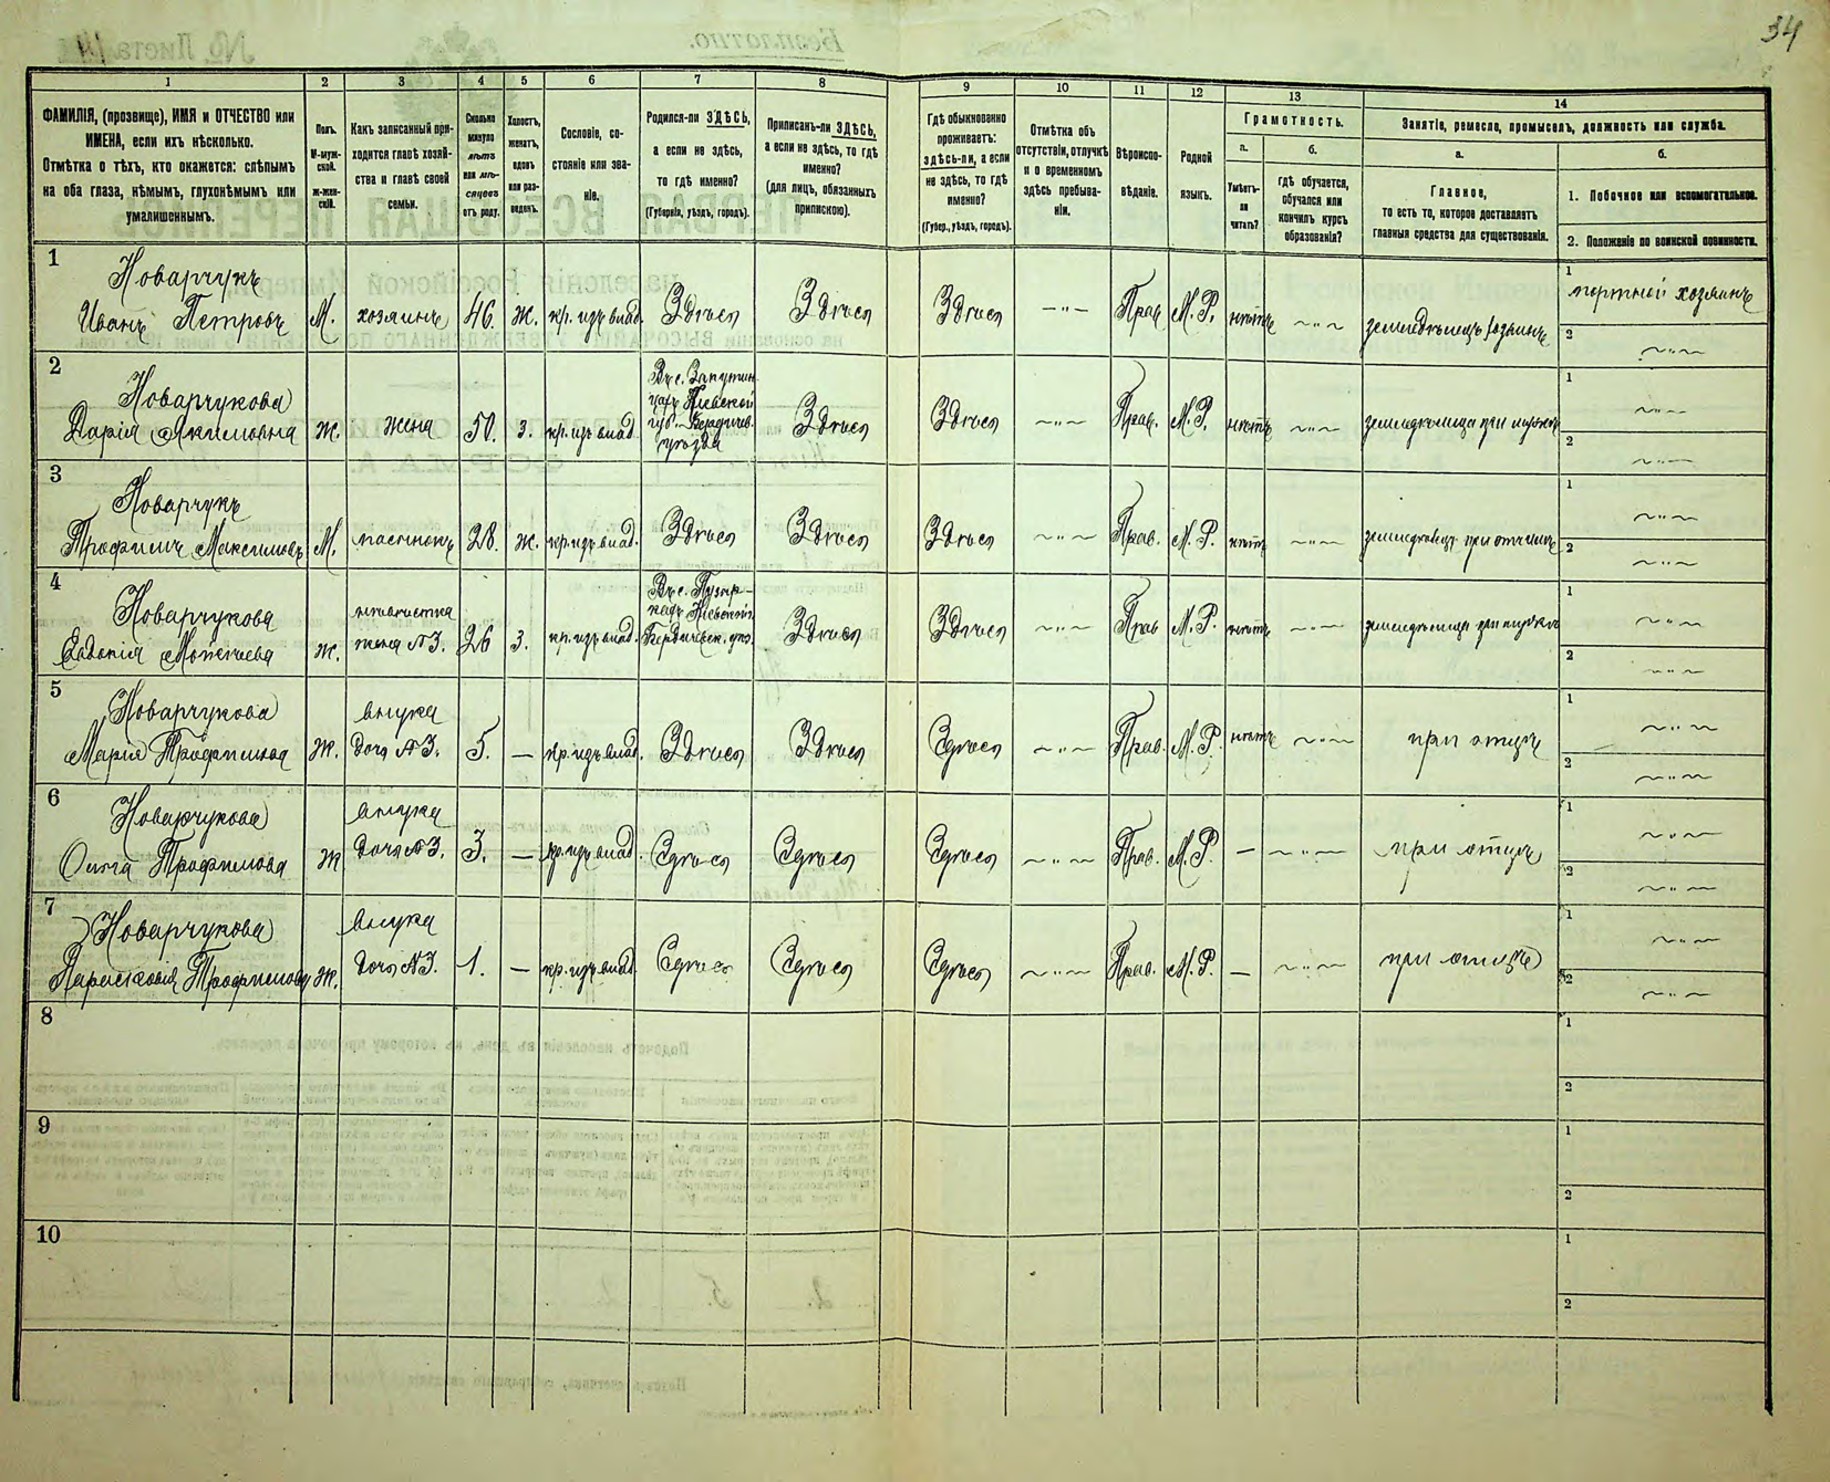 34
1
2
3
4
5
6
7
8
9
10
11
12
13
14
ФАМИЛІЯ, (прозвище), ИМЯ и ОТЧЕСТВО или
ИМЕНА, если ихъ нѣсколько.
Отмѣтка о тѣхъ, кто окажется: слѣпымъ
на оба глаза, нѣмымъ, глухонѣмымъ или
умалишеннымъ.
Полъ.
М-муж-
ской.
ж-жен-
скій.
Какъ записанный при-
ходится главѣ хозяй-
ства и главѣ своей
семьи.
Сколько
минуло
лѣтъ
или мѣ-
сяцевъ
отъ роду.
Холостъ,
женатъ,
вдовъ
или раз-
веденъ.
Сословіе, со-
стояніе или зва-
ніе.
Родился-ли ЗДѢСЬ,
а если не здѣсь,
то гдѣ именно?
(Губернія, уѣздъ, городъ).
Приписанъ-ли ЗДѢСЬ,
а если не здѣсь, то гдѣ
именно?
(для лицъ, обязанныхъ
припискою).
Гдѣ обыкновенно
проживаетъ:
здѣсь-ли, а если
не здѣсь, то гдѣ
именно?
(Губер., уѣздъ, городъ).
Отмѣтка объ
отсутствіи, отлучкѣ
и о временномъ
здѣсь пребыва-
ніи.
Вѣроиспо-
вѣданіе.
Родной
языкъ.
Грамотность.
а.
б.
Умѣетъ-
ли
читать?
гдѣ обучается,
обучался или
кончилъ курсъ
образованія?
Занятіе, ремесло, промыселъ, должность или служба.
а.
б.
Главное,
то есть то, которое доставляетъ
главныя средства для существованія.
1. Побочное или вспомогательное.
2. Положеніе по воинской повинности.
1
Новарчукъ
Иванъ Петровъ
М. хозяинъ 46. ж. кр. изъ влад. Здѣсь Здѣсь Здѣсь —"— Прав. М. Р. нѣтъ ~"~ земледѣлецъ хозяинъ
1 портной хозяинъ
2 ~"~
2
Новарчукова
Дарія Акимовна
ж. жена 50. з. кр. изъ влад.
Кіевской
губ. Бердичев.
уѣзда
Здѣсь Здѣсь ~"~ Прав. М. Р. нѣтъ ~"~
1 ~"~
2 ~"~
3
Новарчукъ
Трофимъ Максимовъ
М. пасынокъ 28. ж. кр. изъ влад. Здѣсь Здѣсь Здѣсь ~"~ Прав. М. Р. нѣтъ ~"~ земледѣлецъ при отчимѣ
1 ~"~
2 ~"~
4
Новарчукова
Евдокія
ж.
невѣстка
жена №3. 26 з. кр. изъ влад.
Кіевской
Бердичевск. уѣз.
Здѣсь Здѣсь ~"~ Прав М. Р. нѣтъ ~"~
1 ~"~
2 ~"~
5
Новарчукова
Марія Трофимова
ж.
внука
дочь №3. 5. — кр. изъ влад. Здѣсь Здѣсь Здѣсь ~"~ Прав. М. Р. нѣтъ ~"~ при отцѣ
1 ~"~
2 ~"~
6
Новарчукова
Ольга Трофимова
ж
внука
дочь №3. 3. — кр. изъ влад. Здѣсь Здѣсь Здѣсь ~"~ Прав. М. Р. — ~"~ при отцѣ
1 ~"~
2 ~"~
7
Новарчукова
Парасковія Трофимова
ж.
внука
дочь №3. 1. — кр. изъ влад. Здѣсь Здѣсь Здѣсь ~"~ Прав. М. Р. — ~"~ при отцѣ
1 ~"~
2 ~"~
8
1
2
9
1
2
10
1
2